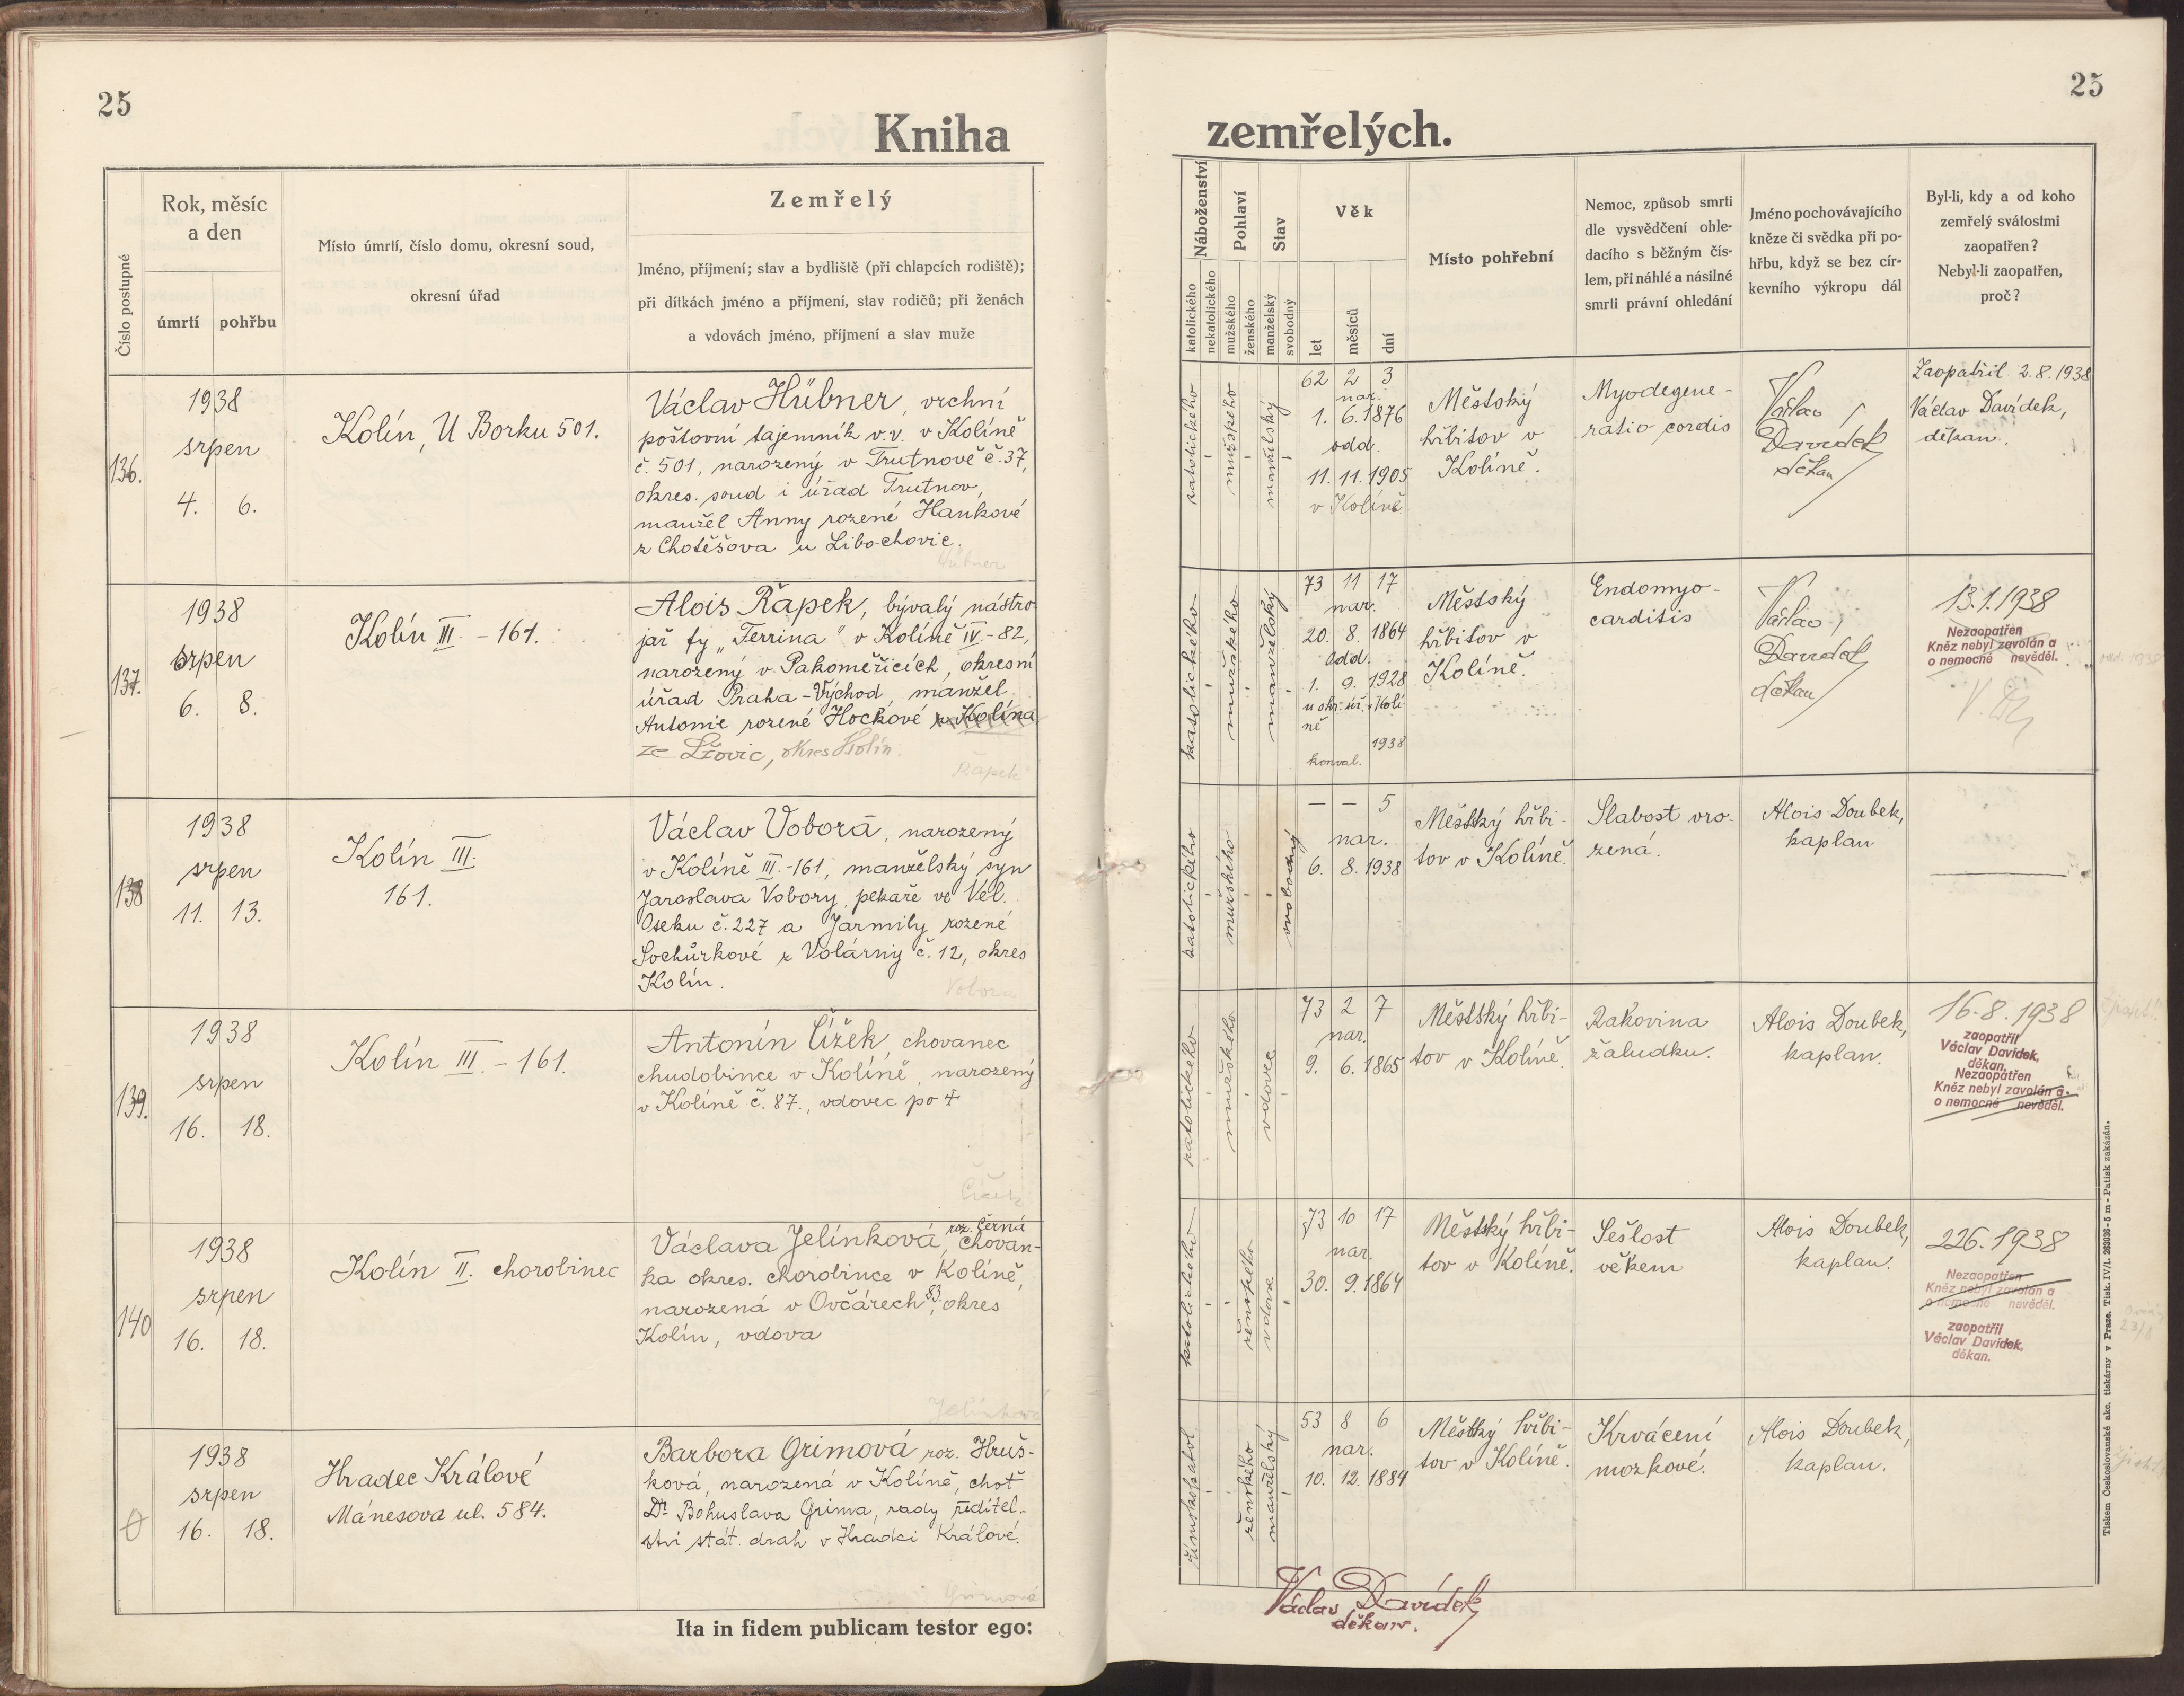 25
Kniha
Číslo postupné
Rok, měsíc
a den
úmrtí
pohřbu
Místo úmrtí, číslo domu, okresní soud,
okresní úřad
Zemřelý
Jméno, příjmení; stav a bydliště (při chlapcích rodiště);
při dítkách jméno a příjmení, stav rodičů; při ženách
a vdovách jméno, příjmení a stav muže
136.
1938
srpen
4. 6.
Kolín, U Borku 501.
Václav Hübner, vrchní
poštovní tajemník v.v. v Kolíně
č. 501, narozený v Trutnově č. 37,
okres. soud i úřad Trutnov,
manžel Anny rozené Hankové
z Chotěšova u Libochovic.
Hübner
137.
1938
srpen
6. 8.
Kolín III. - 161.
Alois Řapek, bývalý nástro-
jař fy „Ferrina" v Kolíně IV.-82,
narozený v Pakoměřicích, okresní
úřad Praha-Východ, manžel
Antonie rozené Hockové z Kolína
ze Lžovic, okres Kolín.
Řapek
138
1938
srpen
11. 13.
Kolín III.
161.
Václav Vobora, narozený
v Kolíně III.-161, manželský syn
Jaroslava Vobory, pekaře ve Vel.
Oseku č. 227 a Jarmily rozené
Sochůrkové z Volárny č. 12, okres
Kolín.
Vobora
139.
1938
srpen
16. 18.
Kolín III. - 161.
Antonín Čížek, chovanec
chudobince v Kolíně, narozený
v Kolíně č. 87., vdovec po †
Čížek
140
1938
srpen
16. 18.
Kolín II. chorobinec
roz. Černá
Václava Jelínková, chovan-
ka okres. chorobince v Kolíně,
narozená v Ovčárech 83, okres
Kolín, vdova
Jelínková
0
1938
srpen
16. 18.
Hradec Králové
Mánesova ul. 584.
Barbora Grimová roz. Hruš-
ková, narozená v Kolíně, choť
Dr. Bohuslava Grima, rady ředitel-
ství stát. drah v Hradci Králové.
Grimová
Ita in fidem publicam testor ego:
25
zemřelých.
Náboženství
katolického
nekatolického
Pohlaví
mužského
ženského
Stav
manželský
svobodný
Věk
let
měsíců
dní
Místo pohřební
Nemoc, způsob smrti
dle vysvědčení ohle-
dacího s běžným čís-
lem, při náhlé a násilné
smrti právní ohledání
Jméno pochovávajícího
kněze či svědka při po-
hřbu, když se bez cír-
kevního výkropu dál
Byl-li, kdy a od koho
zemřelý svátostmi
zaopatřen?
Nebyl-li zaopatřen,
proč?
katolického
mužského
manželský
62 2 3
nar.
1. 6. 1876
odd.
11. 11. 1905
v Kolíně
Městský
hřbitov v
Kolíně.
Myodegene-
ratio cordis
Václav
Davídek
děkan
Zaopatřil 2.8.1938
Václav Davídek,
děkan.
katolického
mužského
manželský
73 11 17
nar.
20. 8. 1864
odd.
1. 9. 1928
u okr. úř. v Kolí-
ně
1938
konval.
Městský
hřbitov v
Kolíně.
Endomyo-
carditis
Václav
Davídek
děkan
13.1.1938
Nezaopatřen
Kněz nebyl zavolán a
o nemocné nevěděl.
katolického
mužského
svobodný
— — 5
nar.
6. 8. 1938
Městský hřbi-
tov v Kolíně.
Slabost vro-
zená.
Alois Doubek,
kaplan
katolického
mužského
vdovec
73 2 7
nar.
9. 6. 1865
Městský hřbi-
tov v Kolíně.
Rakovina
žaludku.
Alois Doubek,
kaplan.
16.8.1938
zaopatřil
Václav Davídek,
děkan.
Nezaopatřen
Kněz nebyl zavolán a
o nemocné nevěděl.
katolického
ženského
vdova
73 10 17
nar.
30. 9. 1864
Městský hřbi-
tov v Kolíně.
Sešlost
věkem
Alois Doubek,
kaplan.
226.1938
Nezaopatřen
Kněz nebyl zavolán a
o nemocné nevěděl.
zaopatřil
Václav Davídek,
děkan.
23/8
římskokatol.
ženského
manželský
53 8 6
nar.
10. 12. 1884
Městský hřbi-
tov v Kolíně.
Krvácení
mozkové.
Alois Doubek,
kaplan.
Václav Davídek
děkan.
Tiskem Československé akc. tiskárny v Praze. Tisk. IV/l. 263036 - 5 m - Patisk zakázán.